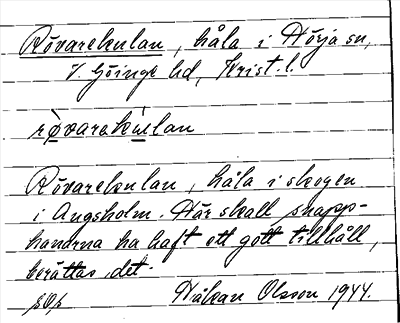 Rövarekulan, håla i Hörja sn,
V. Göinge hd, Krist. l.
rö̀varekùlan
Rövarekulan, håla i skogen
i Angsholm. Här skall snapp-
hanarna ha haft ett gott tillhåll,
berättas det.
Håkan Olsson 1944.